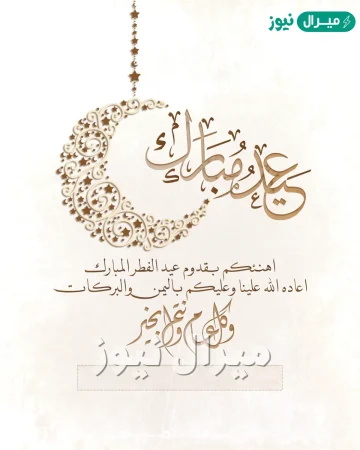 ميرال نيوز
عيد مبارك
اهنئكم بقدوم عيد الفطر المبارك
اعاده الله علينا وعليكم باليمن والبركات
وكل عام وانتم بخير
ميرال نيوز